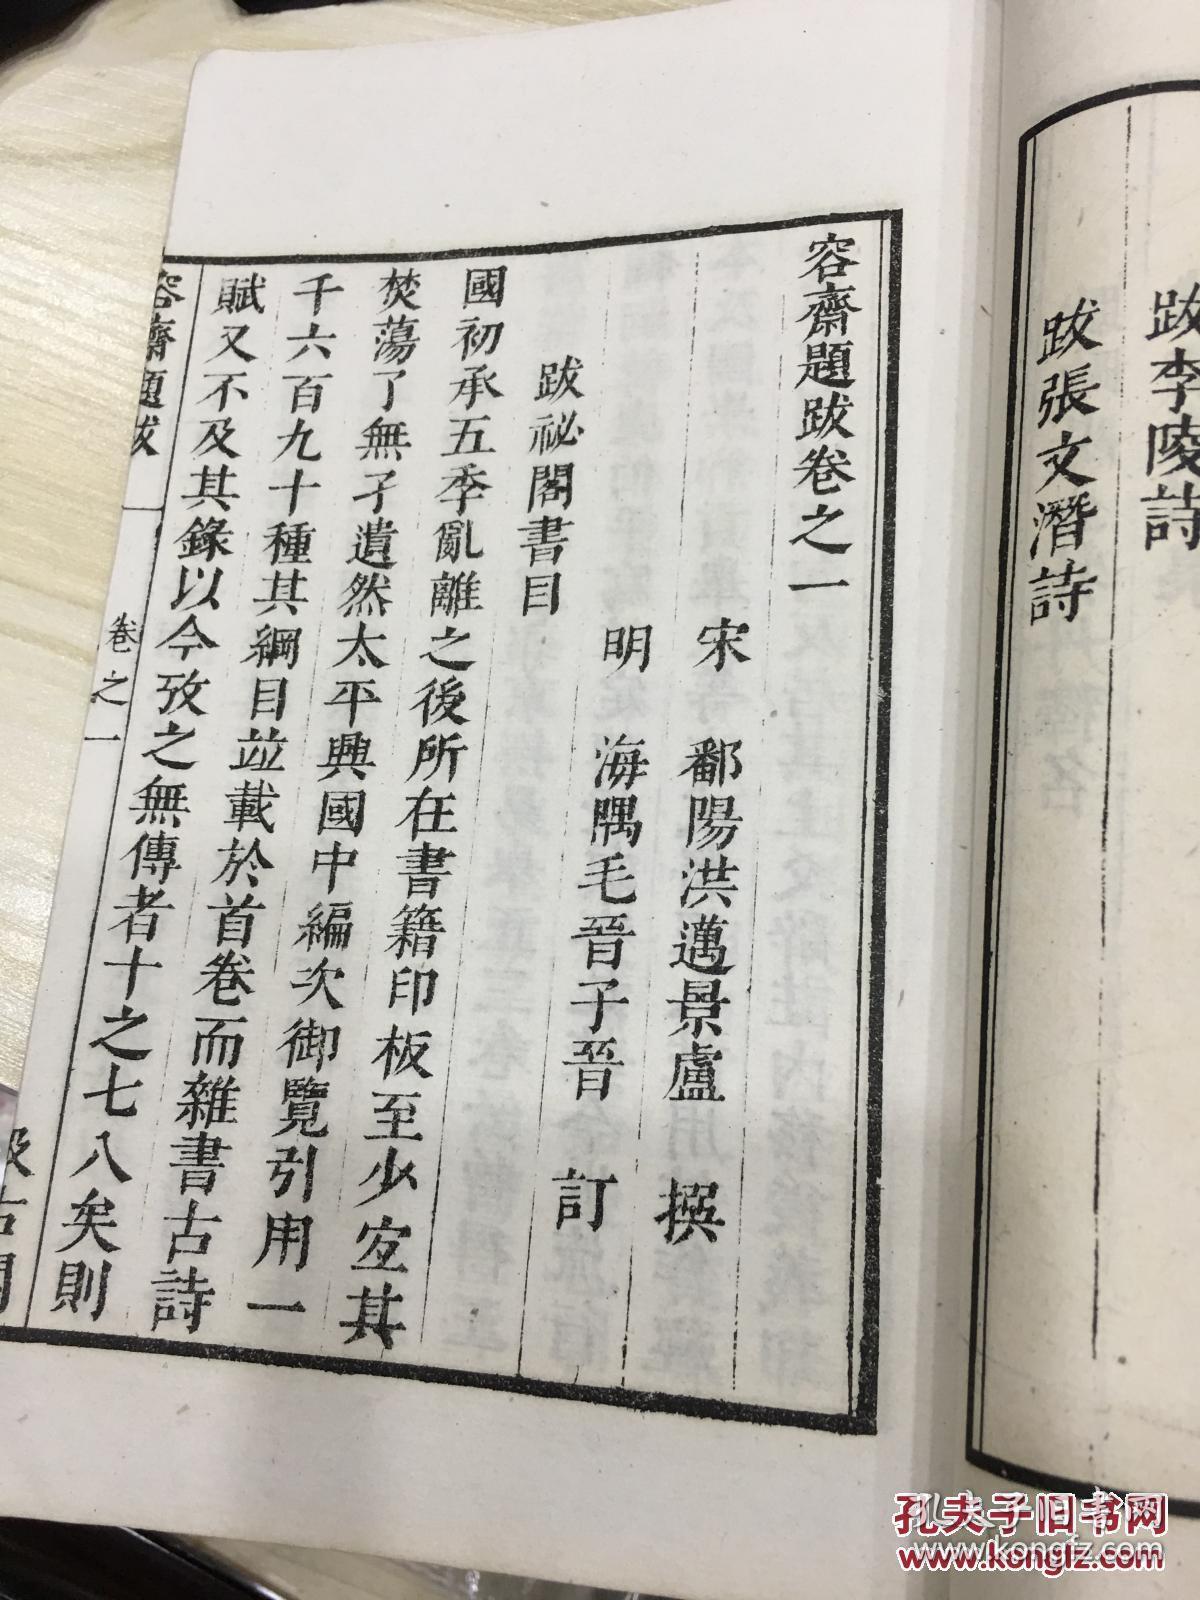 跋李陵詩
跋張文潛詩
容齋題跋卷之一
宋 鄱陽洪邁景盧 撰
明 海隅毛晉子晉 訂
跋祕閣書目
國初承五季亂離之後所在書籍印板至少宜其
焚蕩了無孑遺然太平興國中編次御覽引用一
千六百九十種其綱目並載於首卷而雜書古詩
賦又不及其錄以今攷之無傳者十之七八矣則
容齋題跋 卷之一 汲古閣
孔夫子旧书网
www.kongfz.com